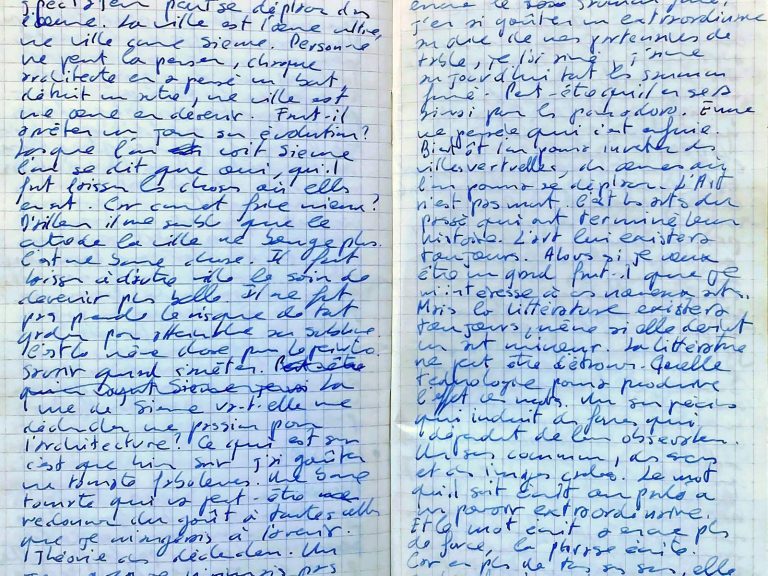 spectateur peut se déplacer dans
l'œuvre. La ville est l'œuvre ultime,
une ville comme Sienne. Personne
ne peut la penser, chaque
architecte en a pensé un bout,
détruit un autre, une ville est
une œuvre en devenir. Faut-il
arrêter un jour son évolution?
Lorsque l'on voit Sienne
l'on se dit que oui, qu'il
faut laisser les choses où elles
en sont. Car comment faire mieux?
D'ailleurs il me semble que le
centre de la ville ne bouge plus.
C'est une bonne chose. Il faut
laisser à d'autres villes le soin de
devenir plus belle. Il ne faut
pas prendre le risque de tout
gâcher pour atteindre au sublime.
C'est la même chose pour la peinture.
Savoir quand s'arrêter. Peut-être
La
vue de Sienne va-t-elle me
déclencher une passion pour
l'architecture? Ce qui est sûr
c'est que hier soir j'ai goûté
une tomate fabuleuse. Une bonne
tomate qui va peut-être me
redonner du goût à toutes celles
que je mangerais à l'avenir.
Théorie du déclencheur. Un
j'ai goûté un extraordinaire
de nos partenaires de
table, je l'ai aimé, j'aime
aujourd'hui tout les saumon
fumé. Peut-être qu'il en sera
ainsi pour les pomodoro. Encore
une pensée qui s'est enfuie.
Bientôt l'on pourra inventer des
villes virtuelles, des œuvres où
l'on pourra se déplacer. L'Art
n'est pas mort. C'est les arts du
passé qui ont terminé leur
histoire. L'art lui existera
toujours. Alors si je veux
être un grand faut-il que je
m'intéresse à ces nouveaux arts..
Mais la littérature existera
toujours, même si elle devient
un art mineur. La littérature
ne peut être détrônée. Quelle
technologie pourra produire
l'effet des mots. Un sens précis
qui induit des forces qui
dépendent de leur observateur.
Un sens commun, des sens
et des images codées. Le mot
qu'il soit écrit ou parlé a
un pouvoir extraordinaire.
Et le mot écrit a encore plus
de force, la phrase écrite.
Car en plus de tous ses sens, elle